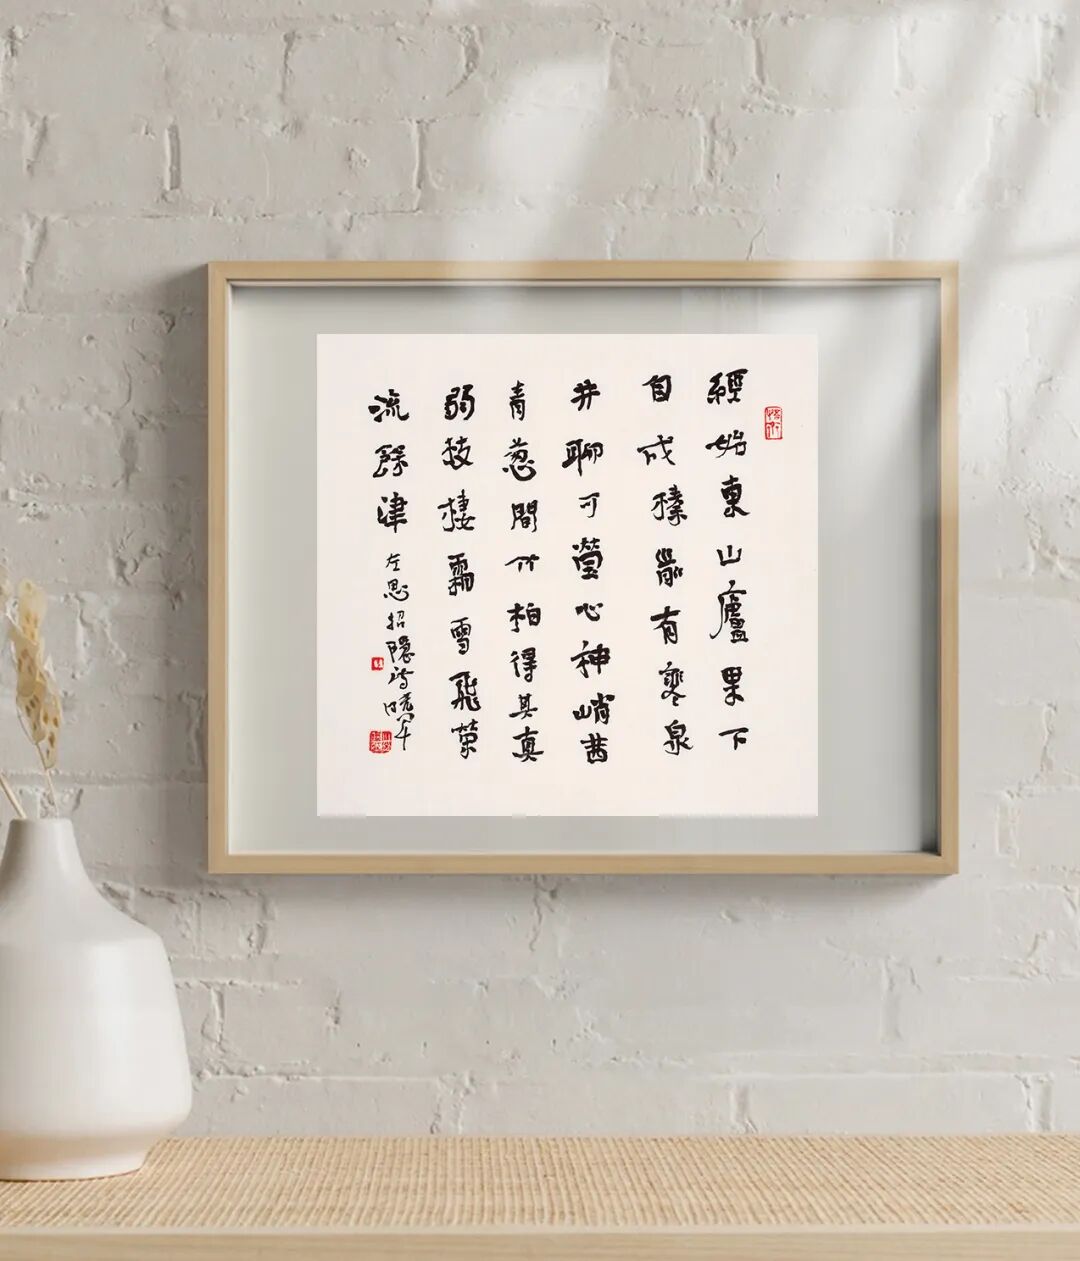 經始東山廬果下
自成榛前有寒泉
井聊可瑩心神峭茜
青葱間竹柏得其真
弱枝棲霜雪飛榮
流餘津
左思招隱詩